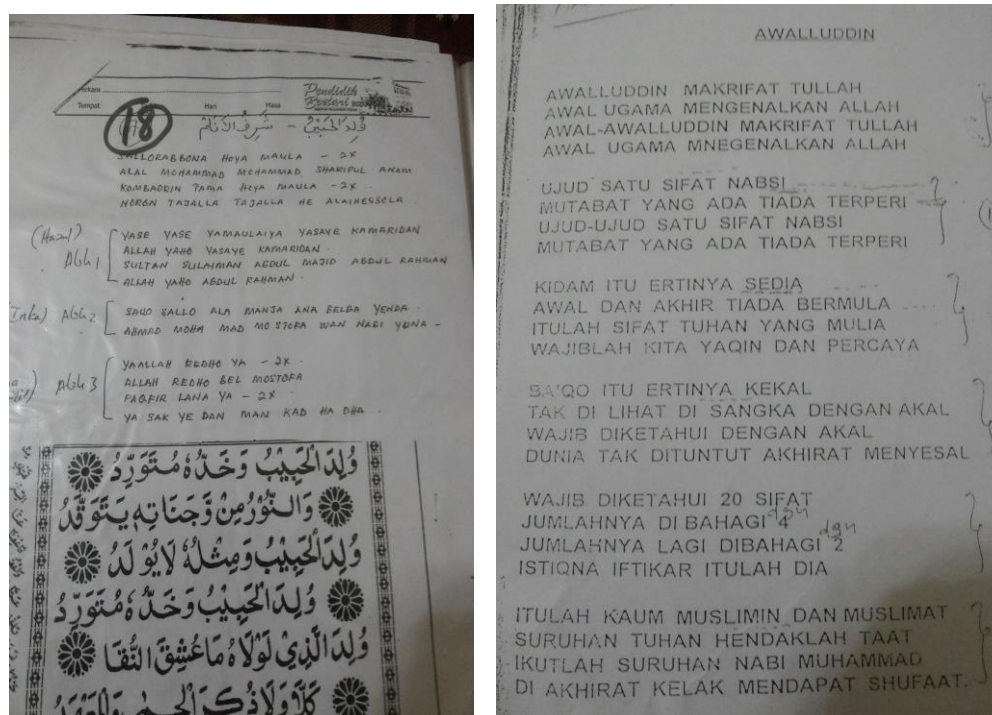 Perkara
Tempat Hari Masa
Pendidik Bestari
18
وُلِدَ الْحَبِيْبُ - شَرِفُ الْأَنَامْ
SALLORABBONA HOYA MAULA - 2X
ALAL MOHAMMAD MOHAMMAD SHARIFUL ANAM
KOMBADDIN TAMA HOYA MAULA - 2X
NORON TAJALLA TAJALLA HE ALAIHESSOLA
YASE YASE YAMAULAIYA YASAYE KAMARIDAN
ALLAH YAHO YASAYE KAMARIDAN
Abh 1
SULTAN SULAIMAN ABDUL MAJID ABDUL RAHMAN
ALLAH YAHO ABDUL RAHMAN
Abh 2
SALLO ALA MANJA ANA BELBA YENDA
AHMAD MOHA MAD MOSTOFA WAN NABI YUNA -
YAALLAH REDHO YA - 2X
Abh 3
ALLAH REDHO BEL MOSTOFA
FAQFIR LANA YA - 2X
YA SAK YE DAN MAN KAD HA DHA
وُلِدَ الْحَبِيْبُ وَخَدُّهٗ مُتَوَرِّدُ
وَالنُّوْرُ مِنْ وَّجَنَاتِهٖ يَتَوَقَّدُ
وُلِدَ الْحَبِيْبُ وَمِثْلُهٗ لَا يُوْلَدُ
وُلِدَ الْحَبِيْبُ وَخَدُّهٗ مُتَوَرِّدُ
وُلِدَ الَّذِيْ لَوْلَاهُ مَا عُشِقَ النُّقَا
كَلَّا وَلَا ذُكِرَ الْحِمٰى وَالْمَعْهَدُ
AWALLUDDIN
AWALLUDDIN MAKRIFAT TULLAH
AWAL UGAMA MENGENALKAN ALLAH
AWAL-AWALLUDDIN MAKRIFAT TULLAH
AWAL UGAMA MNEGENALKAN ALLAH
UJUD SATU SIFAT NABSI
MUTABAT YANG ADA TIADA TERPERI
UJUD-UJUD SATU SIFAT NABSI
MUTABAT YANG ADA TIADA TERPERI
KIDAM ITU ERTINYA SEDIA
AWAL DAN AKHIR TIADA BERMULA
ITULAH SIFAT TUHAN YANG MULIA
WAJIBLAH KITA YAQIN DAN PERCAYA
BA'QO ITU ERTINYA KEKAL
TAK DI LIHAT DI SANGKA DENGAN AKAL
WAJIB DIKETAHUI DENGAN AKAL
DUNIA TAK DITUNTUT AKHIRAT MENYESAL
WAJIB DIKETAHUI 20 SIFAT
JUMLAHNYA DI BAHAGI dgn 4
JUMLAHNYA LAGI DIBAHAGI dgn 2
ISTIQNA IFTIKAR ITULAH DIA
ITULAH KAUM MUSLIMIN DAN MUSLIMAT
SURUHAN TUHAN HENDAKLAH TAAT
IKUTLAH SURUHAN NABI MUHAMMAD
DI AKHIRAT KELAK MENDAPAT SHUFAAT.